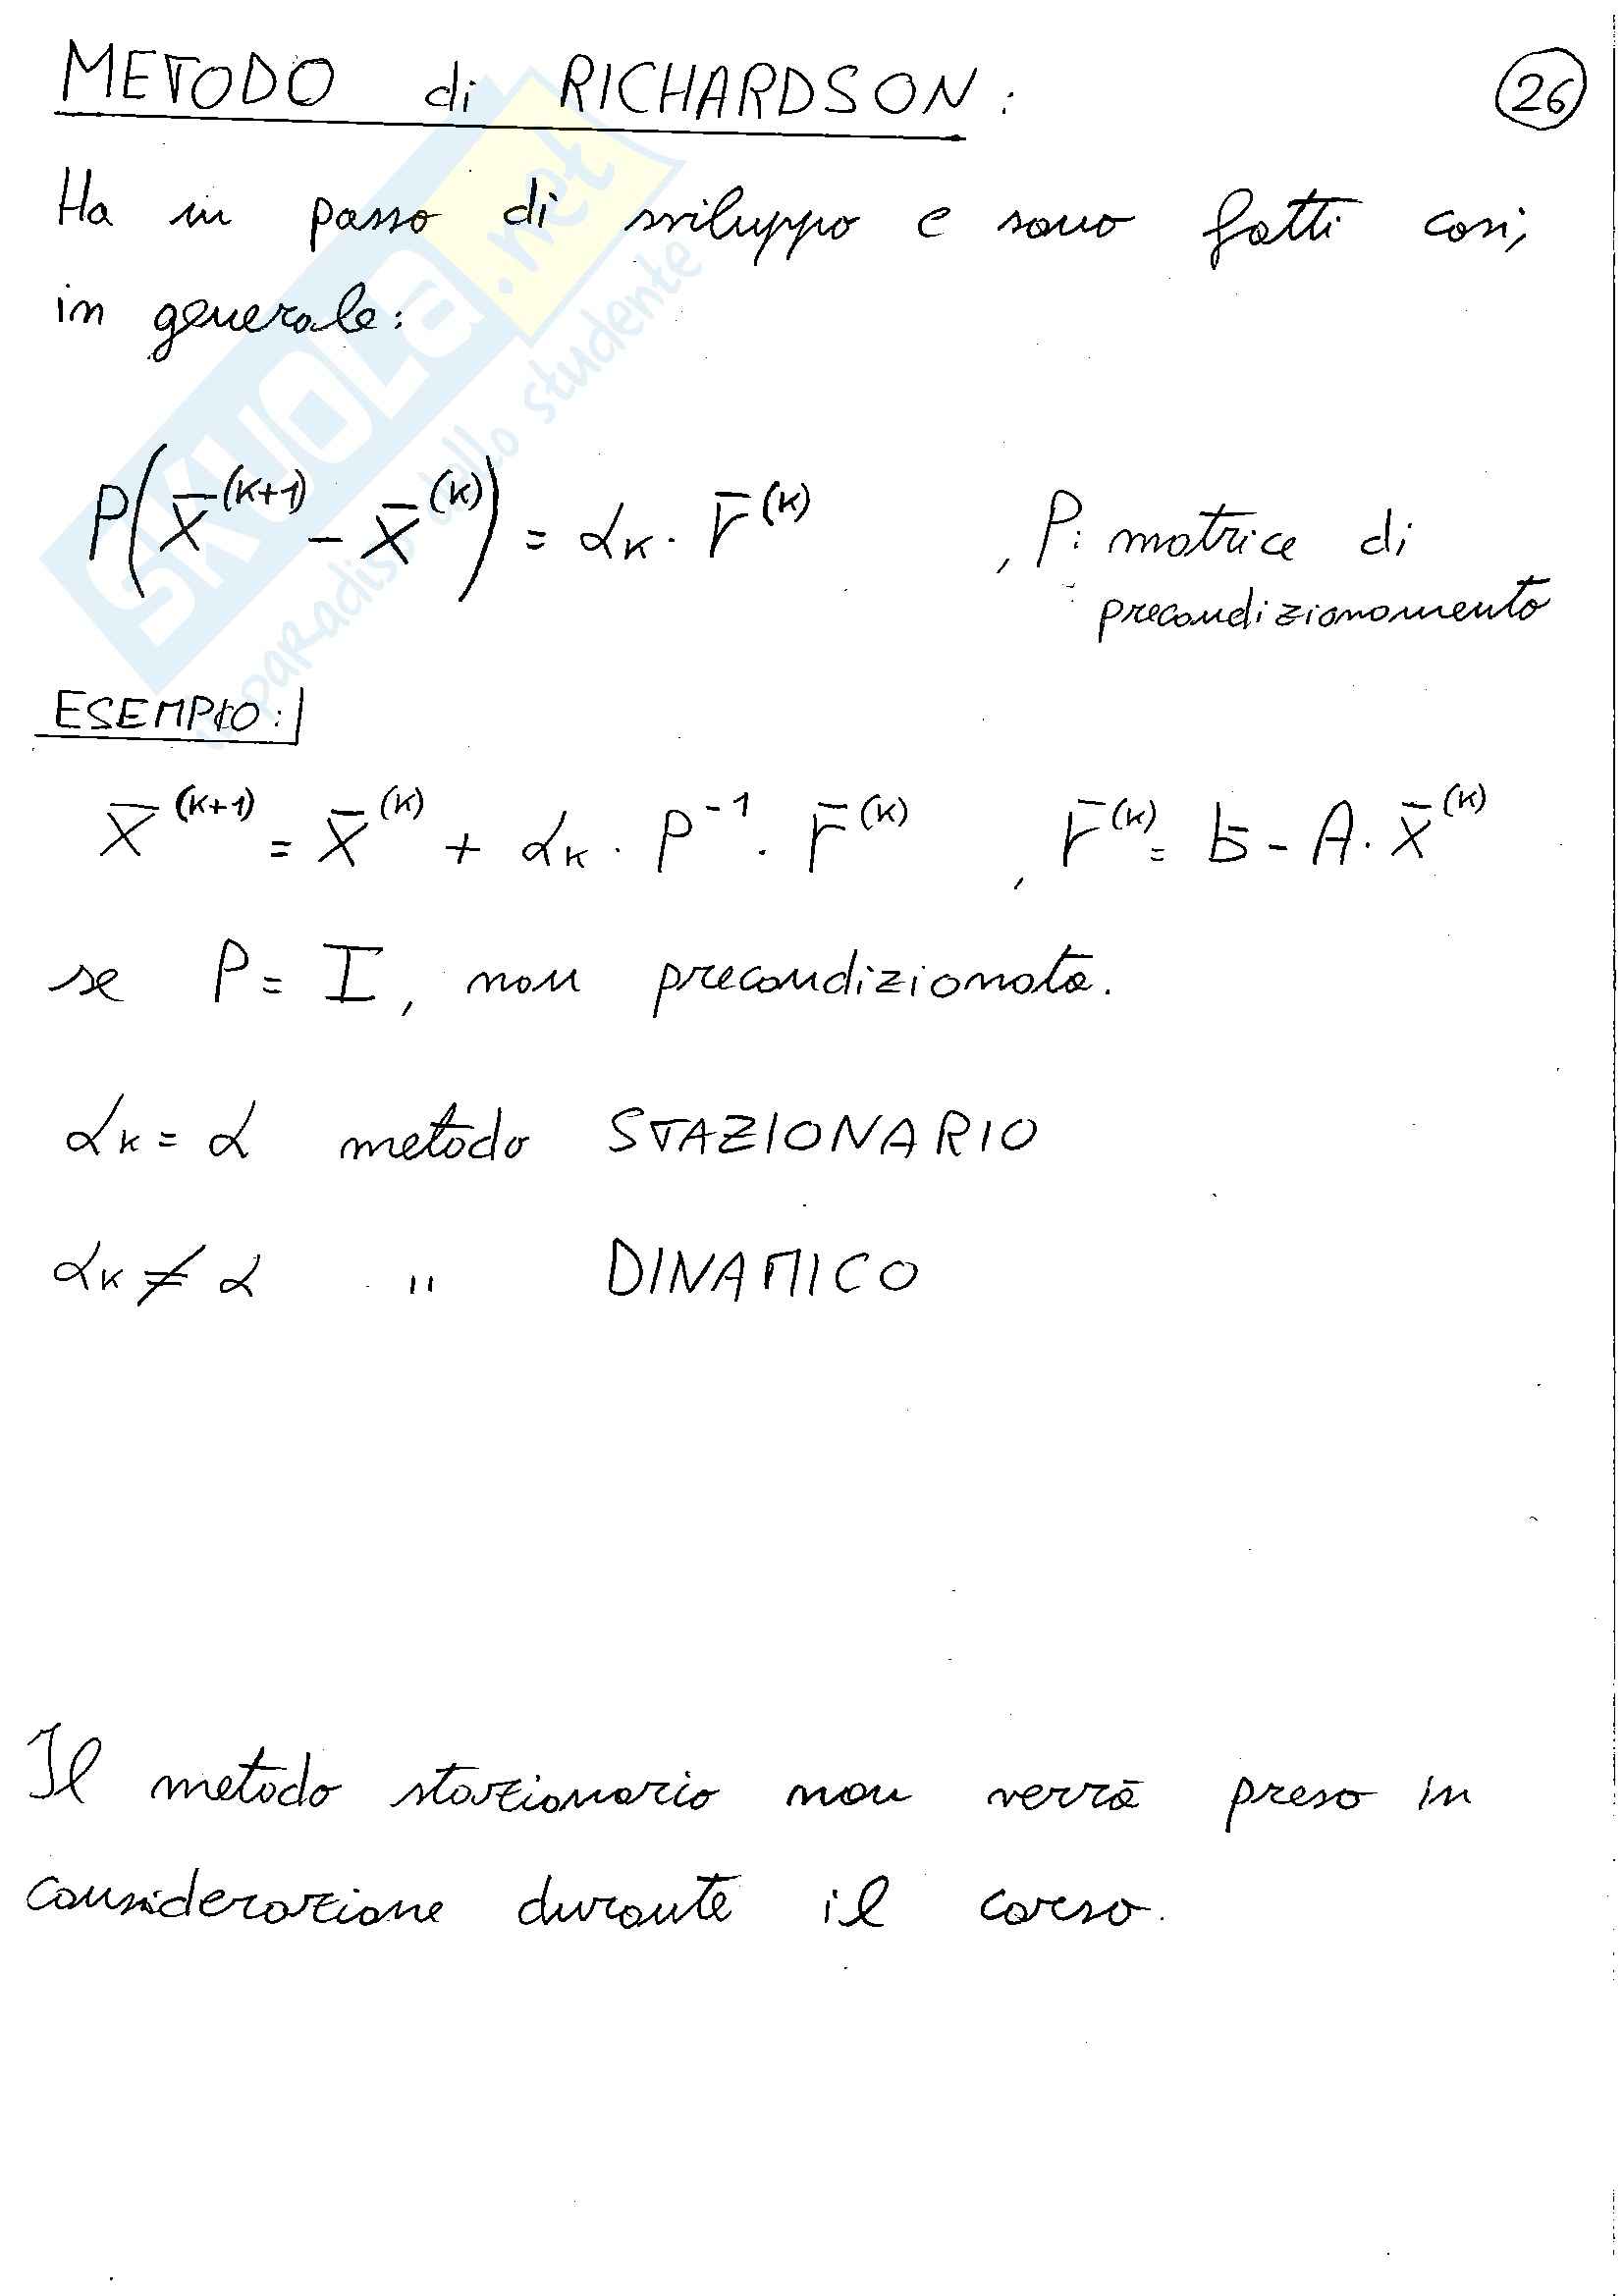 METODO di RICHARDSON:
26
Ha in passo di sviluppo e sono fatti così,
in generale:
P(x̄^(k+1) - x̄^(k)) = αₖ · r̄^(k) , P: matrice di
precondizionamento
ESEMPIO:
x̄^(k+1) = x̄^(k) + αₖ · P^-1 · r̄^(k) , r̄^(k) = b̄ - A · x̄^(k)
se P = I, non precondizionata.
αₖ = α metodo STAZIONARIO
αₖ ≠ α " DINAMICO
Il metodo stazionario non verrà preso in
considerazione durante il corso.
SKUOLA.net
paradiso dello studente